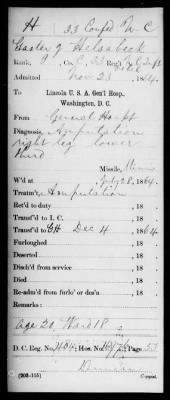 H 33 Confed N C
Easter J Helsabeck
Rank, P, Co. C, 33 Reg't N C Inft
Admitted Nov 23, 1864.
To
LINCOLN U. S. A. Gen'l Hosp.,
Washington, D. C.
From General Hospt
Diagnosis, Amputation
right leg lower
third
Missile, Minnie
W'd at July 28, 1864.
Treatm't, Amputation
Ret'd to duty , 18 .
Transf'd to I. C. , 18 .
Transf'd to GH Dec 4, 1864
Furloughed , 18 .
Deserted , 18 .
Disch'd from service , 18 .
Died , 18 .
Re-adm'd from furlo' or des'n , 18 .
Remarks:
Age 20, Ward 18
D. C. Reg. No. Hos. No. Page 53
(203-115) Copyist.